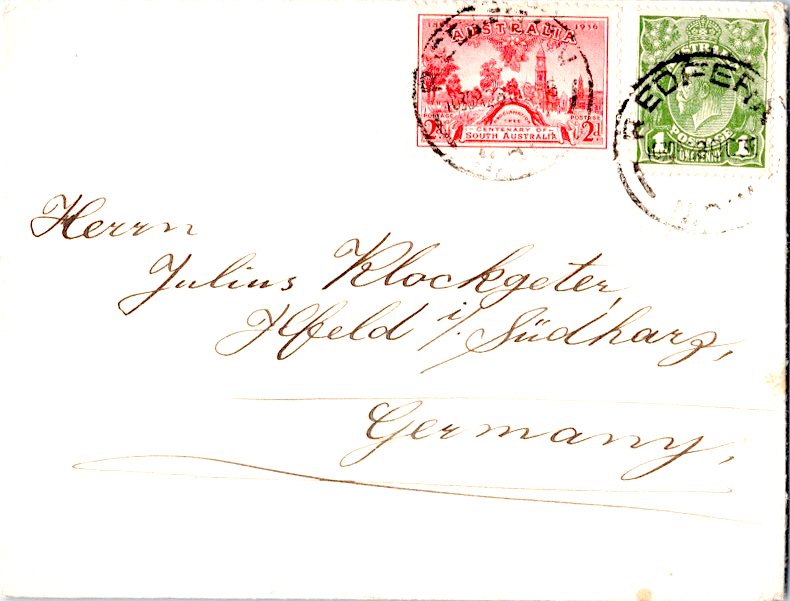 1836 1936
AUSTRALIA
POSTAGE POSTAGE
2d 2d
CENTENARY OF
SOUTH AUSTRALIA
REDFERN
POSTAGE
Herrn
Julius Klockgeter,
Ilfeld i/. Südharz,
Germany,